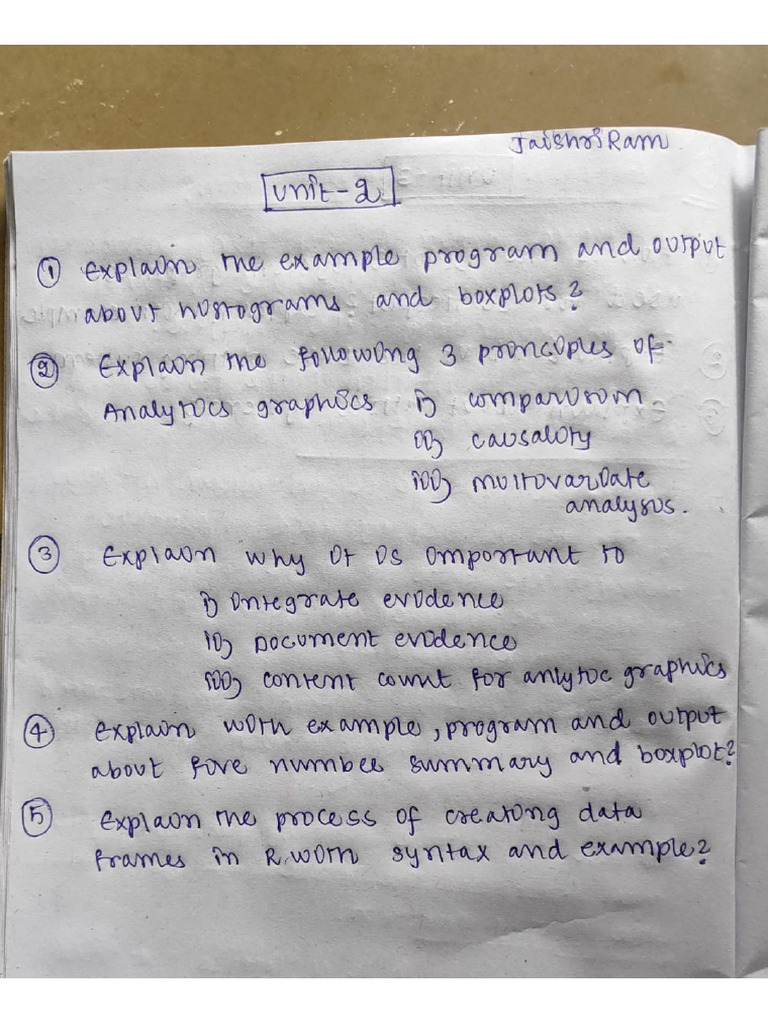 Jai Shri Ram
Unit-2
① Explain the example program and output
about histograms and boxplots?
② Explain the following 3 principles of
Analytics graphics i) comparision
ii) causality
iii) multivariate
analysis.
③ Explain why it is important to
i) integrate evidence
ii) Document evidence
iii) content count for anlytic graphics
④ explain with example, program and output
about five number summary and boxplot?
⑤ Explain the process of creating data
frames in R with syntax and example?